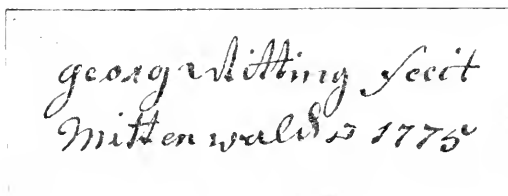 georg Witting fecit
Mitten wald 1775